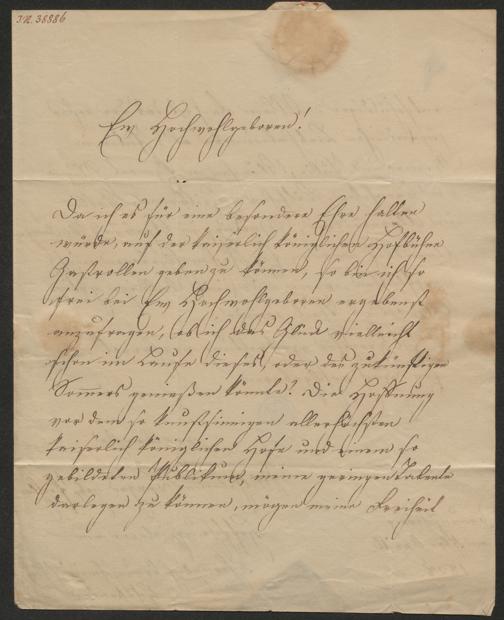 J.N. 38886
Ew Hochwohlgeboren!
Da ich es für eine besondere Ehre halten
würde, auf der kaiserlich königlichen Hofbühne
Gastrollen geben zu können, so bin ich so
frei bei Ew Hochwohlgeboren ergebenst
anzufragen, ob ich das Glück vielleicht
schon im Laufe dieses, oder des zukünftigen
Sommers genießen könnte? Die Hoffnung
vor dem so kunstsinnigen allerhöchsten
kaiserlich königlichen Hofe und einem so
gebildeten Publikum, meine geringen Talente
darlegen zu können, mögen meine Freiheit